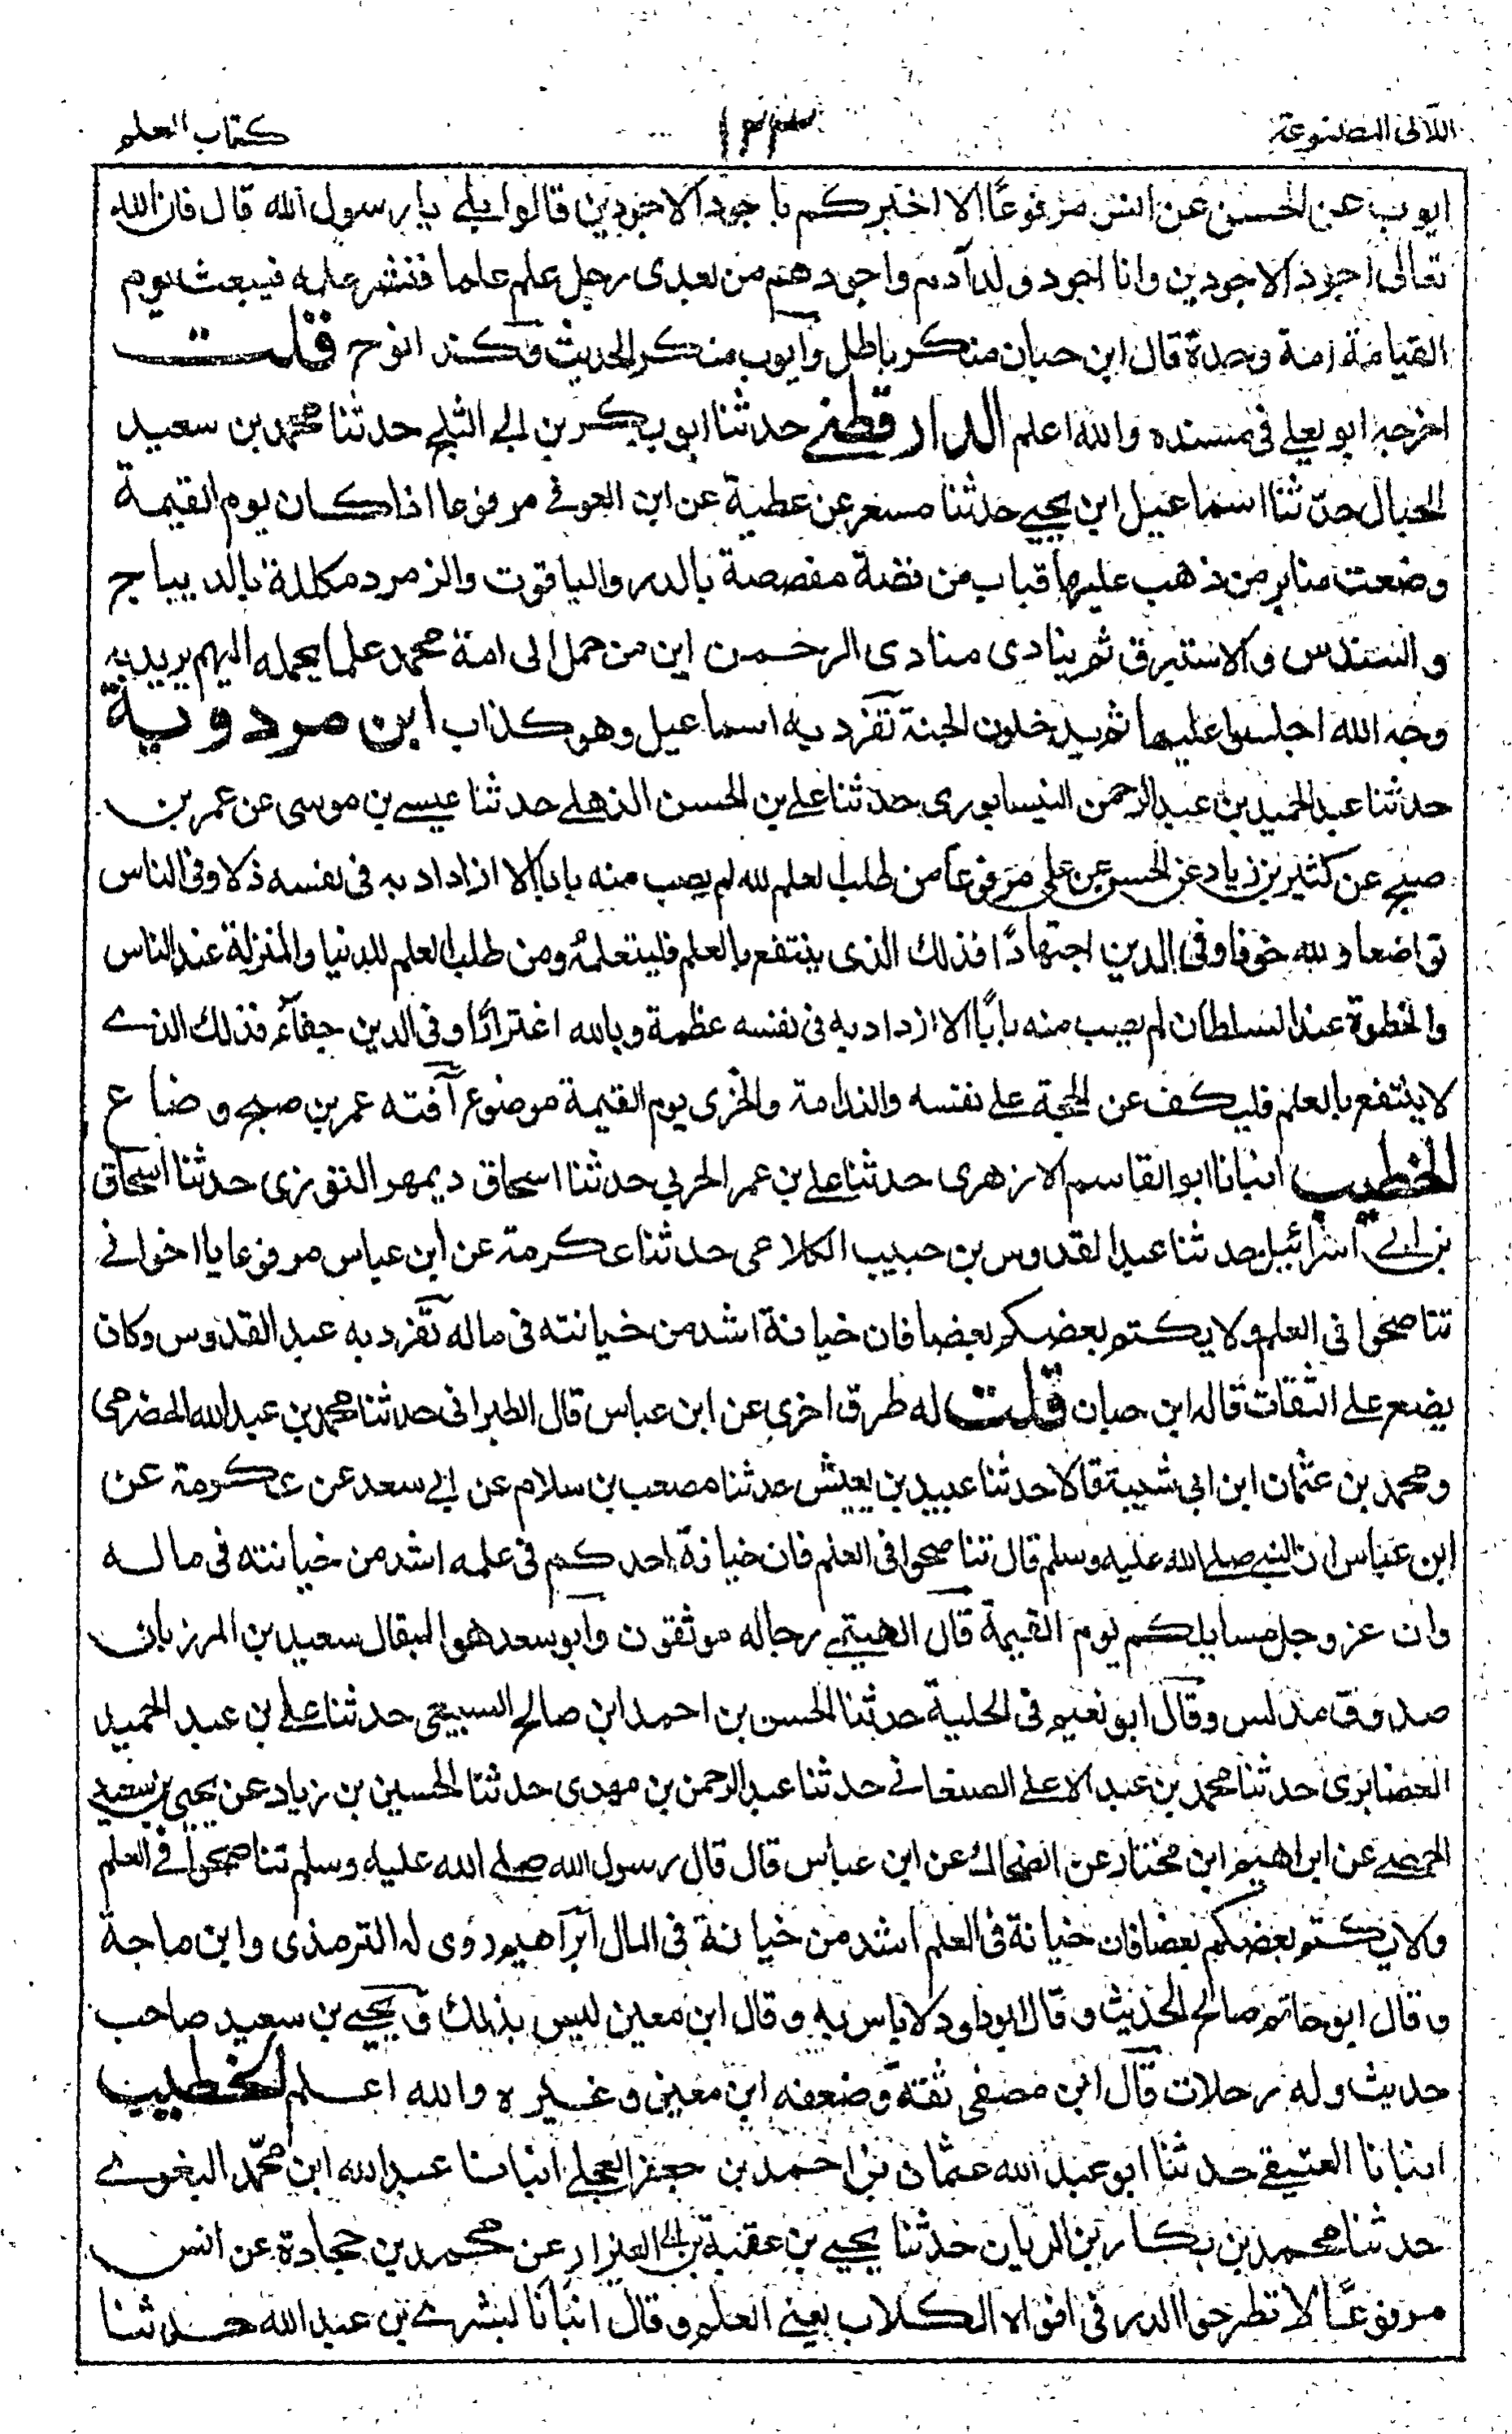 اللآلى المصنوعة
١٢٣
كتاب العلم
ايوب عن الحسن عن انس مرفوعًا الا اخبركم باجود الاجودين قالوا بلى يا رسول الله قال فان الله
تعالى اجود الاجودين وانا اجود ولد آدم واجودهم من بعدى رجل علم علما فنشر علمه فيبعث يوم
القيامة امة وحدة قال ابن حبان منكر باطل وايوب منكر الحديث وكذا نوح قلت
اخرجه ابو يعلى فى مسنده والله اعلم الدارقطنى حدثنا ابو بكر بن ابى الثلج حدثنا محمد بن سعيد
الحبال حدثنا اسماعيل ابن يحيى حدثنا مسعر عن عطية عن ابن العوفى مرفوعا اذا كان يوم القيمة
وضعت منابر من ذهب عليها قباب من فضة مفصصة بالدر والياقوت والزمرد مكللة بالديباج
والسندس والاستبرق ثم ينادى منادى الرحمن اين من حمل الى امة محمد علما يحمله اليهم يريد به
وجه الله اجلسوا عليها ثم يدخلون الجنة تفرد به اسماعيل وهو كذاب ابن مردوية
حدثنا عبد الحميد بن عبد الرحمن النيسابورى حدثنا على بن الحسن الذهلى حدثنا عيسى بن موسى عن عمر بن
صبح عن كثير بن زياد عن الحسن عن على مرفوعا من طلب العلم لله لم يصب منه بابا الا ازداد به فى نفسه ذلا وفى الناس
تواضعا و لله خوفا وفى الدين اجتهادًا فذلك الذى ينتفع بالعلم فليتعلمه ومن طلب العلم للدنيا والمنزلة عند الناس
والحظوة عند السلطان لم يصب منه بابًا الا ازداد به فى نفسه عظمة وبالله اغترارًا وفى الدين جفآء فذلك الذى
لا ينتفع بالعلم فليكف عن الحجة على نفسه والندامة والخزى يوم القيمة موضوع آفته عمر بن صبح وضاع
الخطيب انبانا ابو القاسم الازهرى حدثنا على بن عمر الحربى حدثنا اسحاق ديمهر التوزى حدثنا اسحاق
بن ابى اسرائيل حدثنا عبد القدوس بن حبيب الكلاعى حدثنا عكرمة عن ابن عباس مرفوعا يا اخوانى
تناصحوا فى العلم ولا يكتم بعضكم بعضا فان خيانة اشد من خيانته فى ماله تفرد به عبد القدوس وكان
يضع على الثقات قاله ابن حبان قلت له طرق اخرى عن ابن عباس قال الطبرانى حدثنا محمد بن عبد الله الحضرمى
ومحمد بن عثمان ابن ابى شيبة قالا حدثنا عبيد بن يعيش حدثنا مصعب بن سلام عن ابى سعد عن عكرمة عن
ابن عباس ان النبى صلى الله عليه وسلم قال تناصحوا فى العلم فان خيانة احدكم فى علمه اشد من خيانته فى ماله
وان عز وجل مسايلكم يوم القيمة قال الهيتمى رجاله موثقون وابو سعد هو البقال سعيد بن المرزبان
صدوق مدلس وقال ابو نعيم فى الحلية حدثنا الحسن بن احمد ابن صالح السبيعى حدثنا على بن عبد الحميد
الغضايرى حدثنا محمد بن عبد الاعلى الصنعانى حدثنا عبد الرحمن بن مهدى حدثنا الحسين بن زياد عن يحيى بن سعيد
الحمصى عن ابراهيم ابن مختار عن الضحاك عن ابن عباس قال قال رسول الله صلى الله عليه وسلم تناصحوا فى العلم
ولا يكتم بعضكم بعضا فان خيانة فى العلم اشد من خيانة فى المال ابراهيم روى له الترمذى وابن ماجة
وقال ابو حاتم صالح الحديث وقال ابو داود لا باس به وقال ابن معين ليس بذلك ويحيى بن سعيد صاحب
حديث وله رحلات قال ابن مصفى ثقة وضعفه ابن معين وغيره والله اعلم الخطيب
انبانا العتيقى حدثنا ابو عبد الله عثمان بن احمد بن جعفر العجلى انبانا عبد الله ابن محمد البغوى
حدثنا محمد بن بكار بن الريان حدثنا يحيى بن عقبة بن ابى العيزار عن محمد بن جحادة عن انس
مرفوعًا لا تطرحوا الدر فى افواه الكلاب يعنى العلم وقال انبانا لبشرى بن عبد الله حدثنا